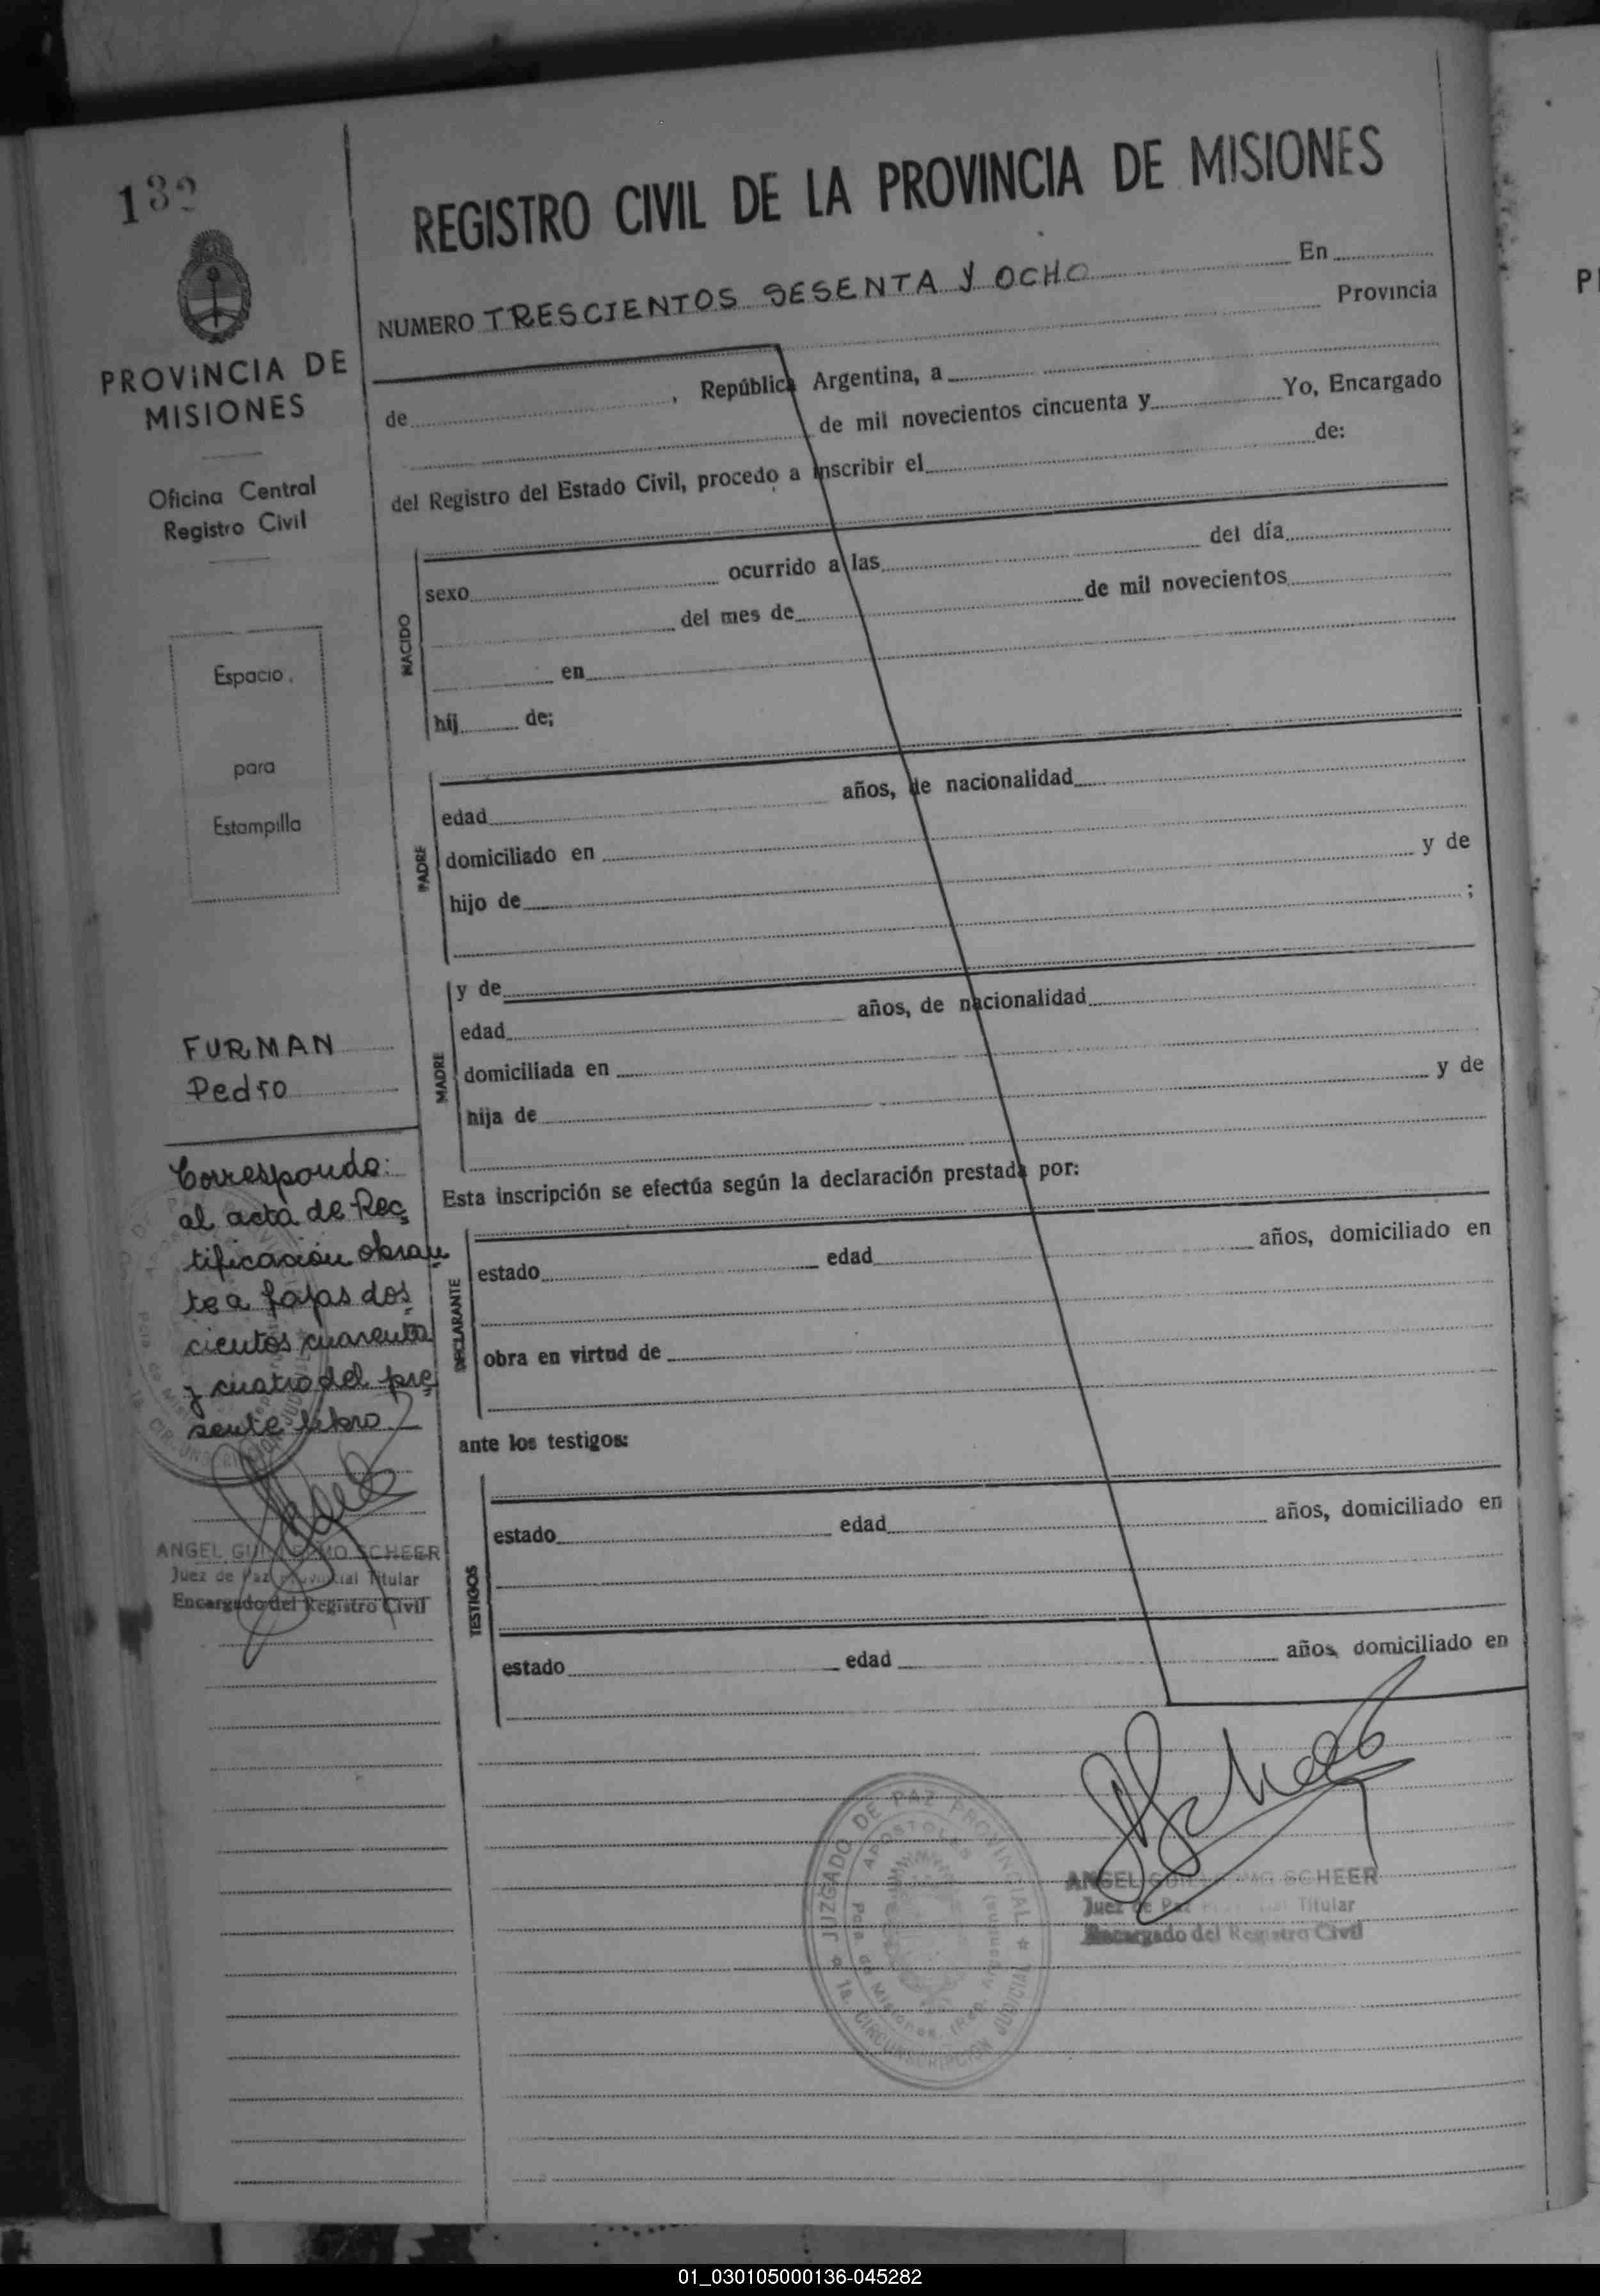 132
PROVINCIA DE
MISIONES
Oficina Central
Registro Civil
Espacio
para
Estampilla
FURMAN
Pedro
Corresponde:
al acta de Rec
tificación obran
te a fojas dos
cientos cuarenta
y cuatro del pre
sente libro
ANGEL GUILLERMO SCHEER
Juez de Paz Provincial Titular
Encargado del Registro Civil
REGISTRO CIVIL DE LA PROVINCIA DE MISIONES
NUMERO TRESCIENTOS SESENTA Y OCHO En
Provincia
de , República Argentina, a
de mil novecientos cincuenta y Yo, Encargado
del Registro del Estado Civil, procedo a inscribir el de:
NACIDO
sexo ocurrido a las del día
del mes de de mil novecientos
en
hij de;
PADRE
edad años, de nacionalidad
domiciliado en
hijo de y de
;
MADRE
y de
edad años, de nacionalidad
domiciliada en
hija de y de
Esta inscripción se efectúa según la declaración prestada por:
DECLARANTE
estado edad años, domiciliado en
obra en virtud de
ante los testigos:
TESTIGOS
estado edad años, domiciliado en
estado edad años, domiciliado en
JUZGADO DE PAZ PROVINCIAL
APOSTOLES
Pcia. de Misiones (Rep. Argentina)
1a. CIRCUNSCRIPCION JUDICIAL
ANGEL GUILLERMO SCHEER
Juez de Paz Provincial Titular
Encargado del Registro Civil
01_030105000136-045282